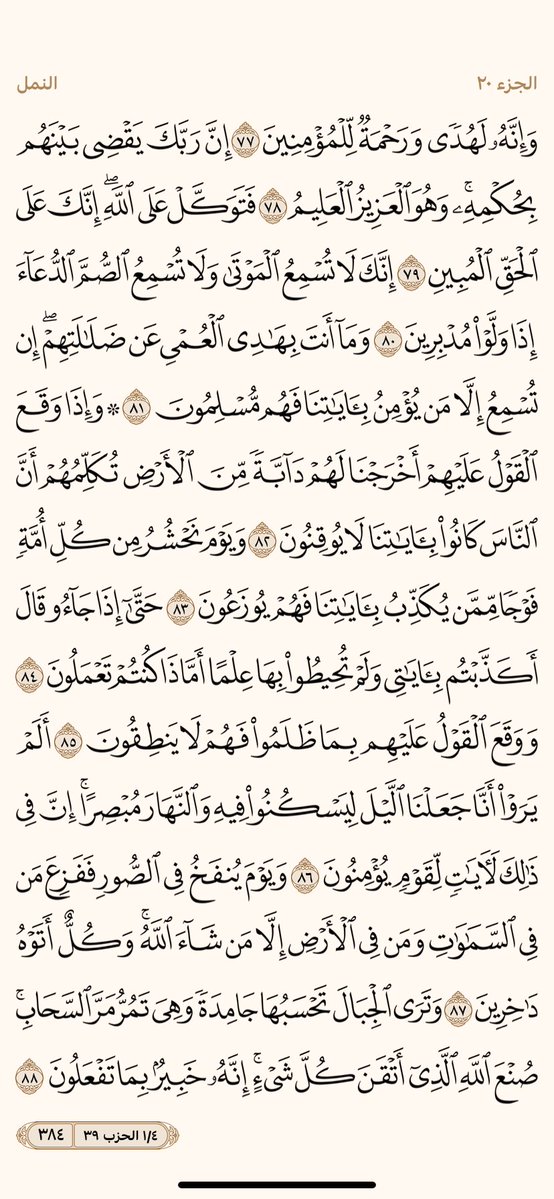 الجزء ٢٠
النمل
وَإِنَّهُۥ لَهُدًى وَرَحْمَةٌ لِّلْمُؤْمِنِينَ ٧٧ إِنَّ رَبَّكَ يَقْضِى بَيْنَهُم
بِحُكْمِهِۦۚ وَهُوَ ٱلْعَزِيزُ ٱلْعَلِيمُ ٧٨ فَتَوَكَّلْ عَلَى ٱللَّهِۖ إِنَّكَ عَلَى
ٱلْحَقِّ ٱلْمُبِينِ ٧٩ إِنَّكَ لَا تُسْمِعُ ٱلْمَوْتَىٰ وَلَا تُسْمِعُ ٱلصُّمَّ ٱلدُّعَآءَ
إِذَا وَلَّوْا۟ مُدْبِرِينَ ٨٠ وَمَآ أَنتَ بِهَـٰدِى ٱلْعُمْىِ عَن ضَلَـٰلَتِهِمْۖ إِن
تُسْمِعُ إِلَّا مَن يُؤْمِنُ بِـَٔايَـٰتِنَا فَهُم مُّسْلِمُونَ ٨١ ۞ وَإِذَا وَقَعَ
ٱلْقَوْلُ عَلَيْهِمْ أَخْرَجْنَا لَهُمْ دَآبَّةً مِّنَ ٱلْأَرْضِ تُكَلِّمُهُمْ أَنَّ
ٱلنَّاسَ كَانُوا۟ بِـَٔايَـٰتِنَا لَا يُوقِنُونَ ٨٢ وَيَوْمَ نَحْشُرُ مِن كُلِّ أُمَّةٍ
فَوْجًا مِّمَّن يُكَذِّبُ بِـَٔايَـٰتِنَا فَهُمْ يُوزَعُونَ ٨٣ حَتَّىٰٓ إِذَا جَآءُو قَالَ
أَكَذَّبْتُم بِـَٔايَـٰتِى وَلَمْ تُحِيطُوا۟ بِهَا عِلْمًا أَمَّاذَا كُنتُمْ تَعْمَلُونَ ٨٤
وَوَقَعَ ٱلْقَوْلُ عَلَيْهِم بِمَا ظَلَمُوا۟ فَهُمْ لَا يَنطِقُونَ ٨٥ أَلَمْ
يَرَوْا۟ أَنَّا جَعَلْنَا ٱلَّيْلَ لِيَسْكُنُوا۟ فِيهِ وَٱلنَّهَارَ مُبْصِرًاۚ إِنَّ فِى
ذَٰلِكَ لَـَٔايَـٰتٍ لِّقَوْمٍ يُؤْمِنُونَ ٨٦ وَيَوْمَ يُنفَخُ فِى ٱلصُّورِ فَفَزِعَ مَن
فِى ٱلسَّمَـٰوَٰتِ وَمَن فِى ٱلْأَرْضِ إِلَّا مَن شَآءَ ٱللَّهُۚ وَكُلٌّ أَتَوْهُ
دَٰخِرِينَ ٨٧ وَتَرَى ٱلْجِبَالَ تَحْسَبُهَا جَامِدَةً وَهِىَ تَمُرُّ مَرَّ ٱلسَّحَابِۚ
صُنْعَ ٱللَّهِ ٱلَّذِىٓ أَتْقَنَ كُلَّ شَىْءٍۚ إِنَّهُۥ خَبِيرٌۢ بِمَا تَفْعَلُونَ ٨٨
١/٤ الحزب ٣٩
٣٨٤